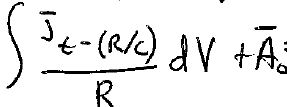 ∫ (j̄_{t-(R/c)} / R) dV + Ā₀